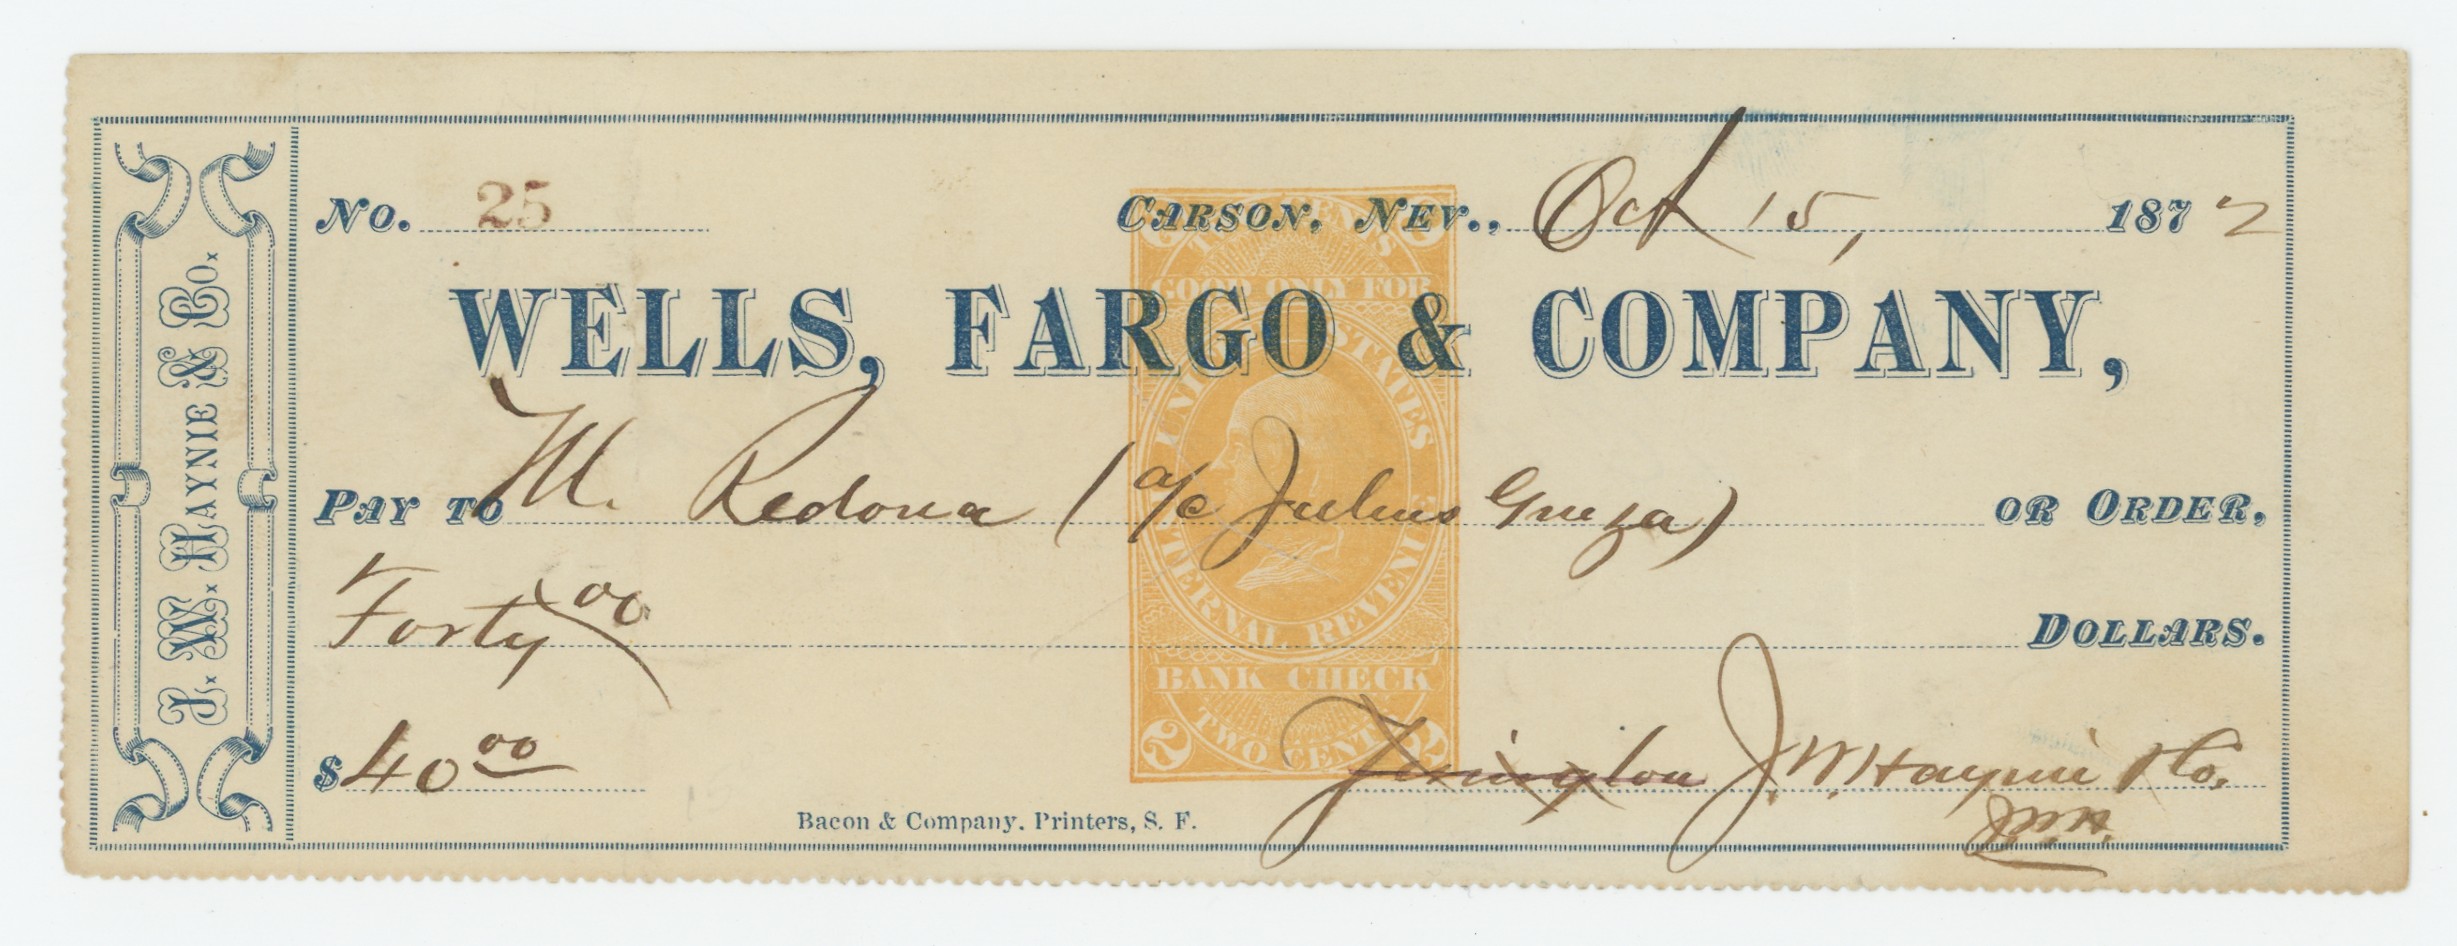 J. W. HAYNIE & CO.
NO. 25 CARSON, NEV., Oct 15, 1872
WELLS, FARGO & COMPANY,
PAY TO M. Redona (a/c Julius) OR ORDER,
Forty 00 DOLLARS.
$40 00 J. W. Haynie & Co.
J.W.H.
Bacon & Company, Printers, S. F.
TWO CENTS
GOOD ONLY FOR
UNITED STATES
INTERNAL REVENUE
BANK CHECK
2 TWO CENTS 2